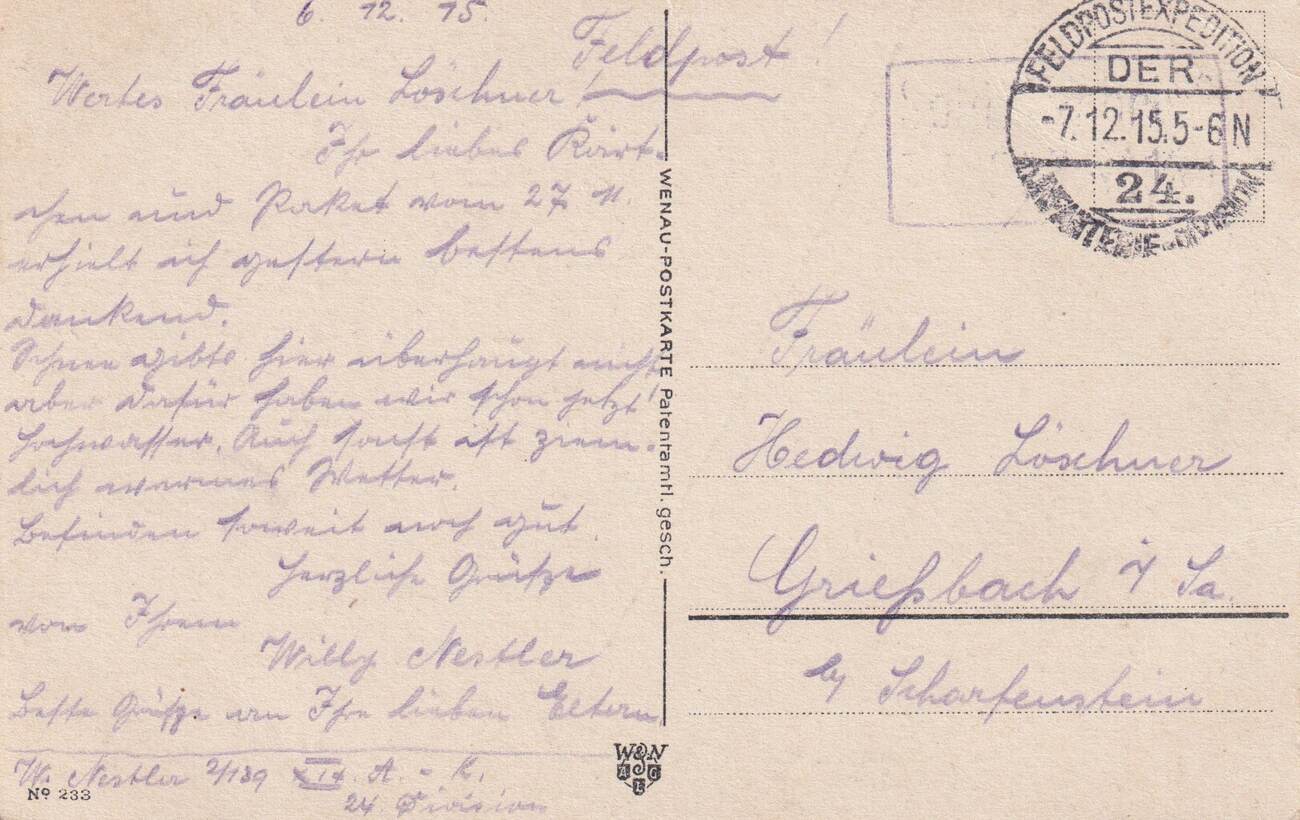 6. 12. 15.
Feldpost!
Wertes Fräulein Löschner!
Ihr liebes Kärt-
chen und Paket vom 27. 11.
erhielt ich gestern bestens
dankend.
Schnee gibts hier überhaupt nicht
aber dafür haben wir schon jetzt
Hochwasser. Auch sonst ist ziem-
lich warmes Wetter.
Befinden soweit noch gut.
Herzliche Grüße
von Ihrem
Willy Nestler
Beste Grüße an Ihre lieben Eltern
W. Nestler 2/139 A.-K.
24. Division
No 233
WENAU-POSTKARTE Patentamtl. gesch.
W&N
FELDPOSTEXPEDITION
DER
-7.12.15.5-6N
24.
INFANTERIE-DIVISION
Fräulein
Hedwig Löschner
Grießbach i/Sa.
b/ Scharfenstein